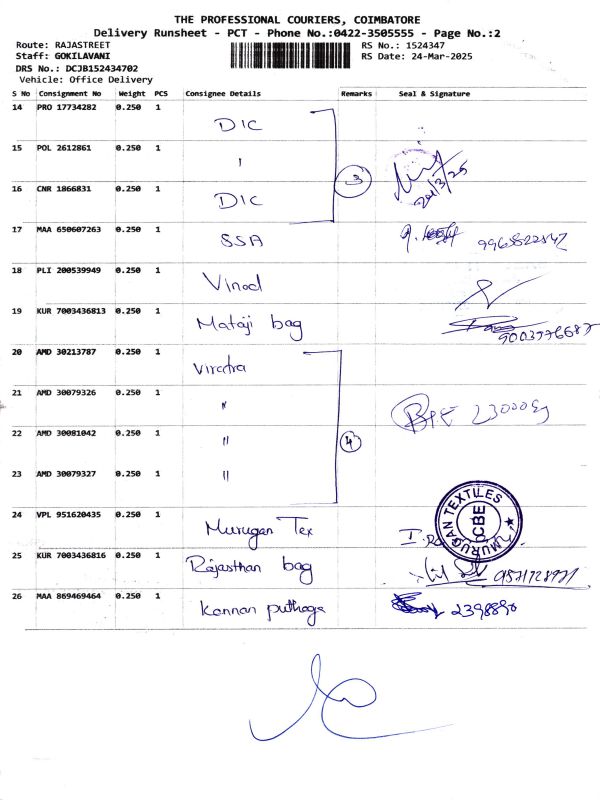 THE PROFESSIONAL COURIERS, COIMBATORE
Delivery Runsheet - PCT - Phone No.:0422-3505555 - Page No.:2
Route: RAJASTREET RS No.: 1524347
Staff: GOKILAVANI RS Date: 24-Mar-2025
DRS No.: DCJB152434702
Vehicle: Office Delivery
S No Consignment No Weight PCS Consignee Details Remarks Seal & Signature
14 PRO 17734282 0.250 1 DIC
15 POL 2612861 0.250 1 "
3
16 CNR 1866831 0.250 1 DIC
17 MAA 650607263 0.250 1 SSA
18 PLI 200539949 0.250 1 Vinod
19 KUR 7003436813 0.250 1 Mataji bag
20 AMD 30213787 0.250 1 Viratra
21 AMD 30079326 0.250 1 "
22 AMD 30081042 0.250 1 " 4
23 AMD 30079327 0.250 1 "
24 VPL 951620435 0.250 1 Murugan Tex MURUGAN TEXTILES CBE
25 KUR 7003436816 0.250 1 Rajasthan bag
26 MAA 869469464 0.250 1 Kannan puthaga 2398890